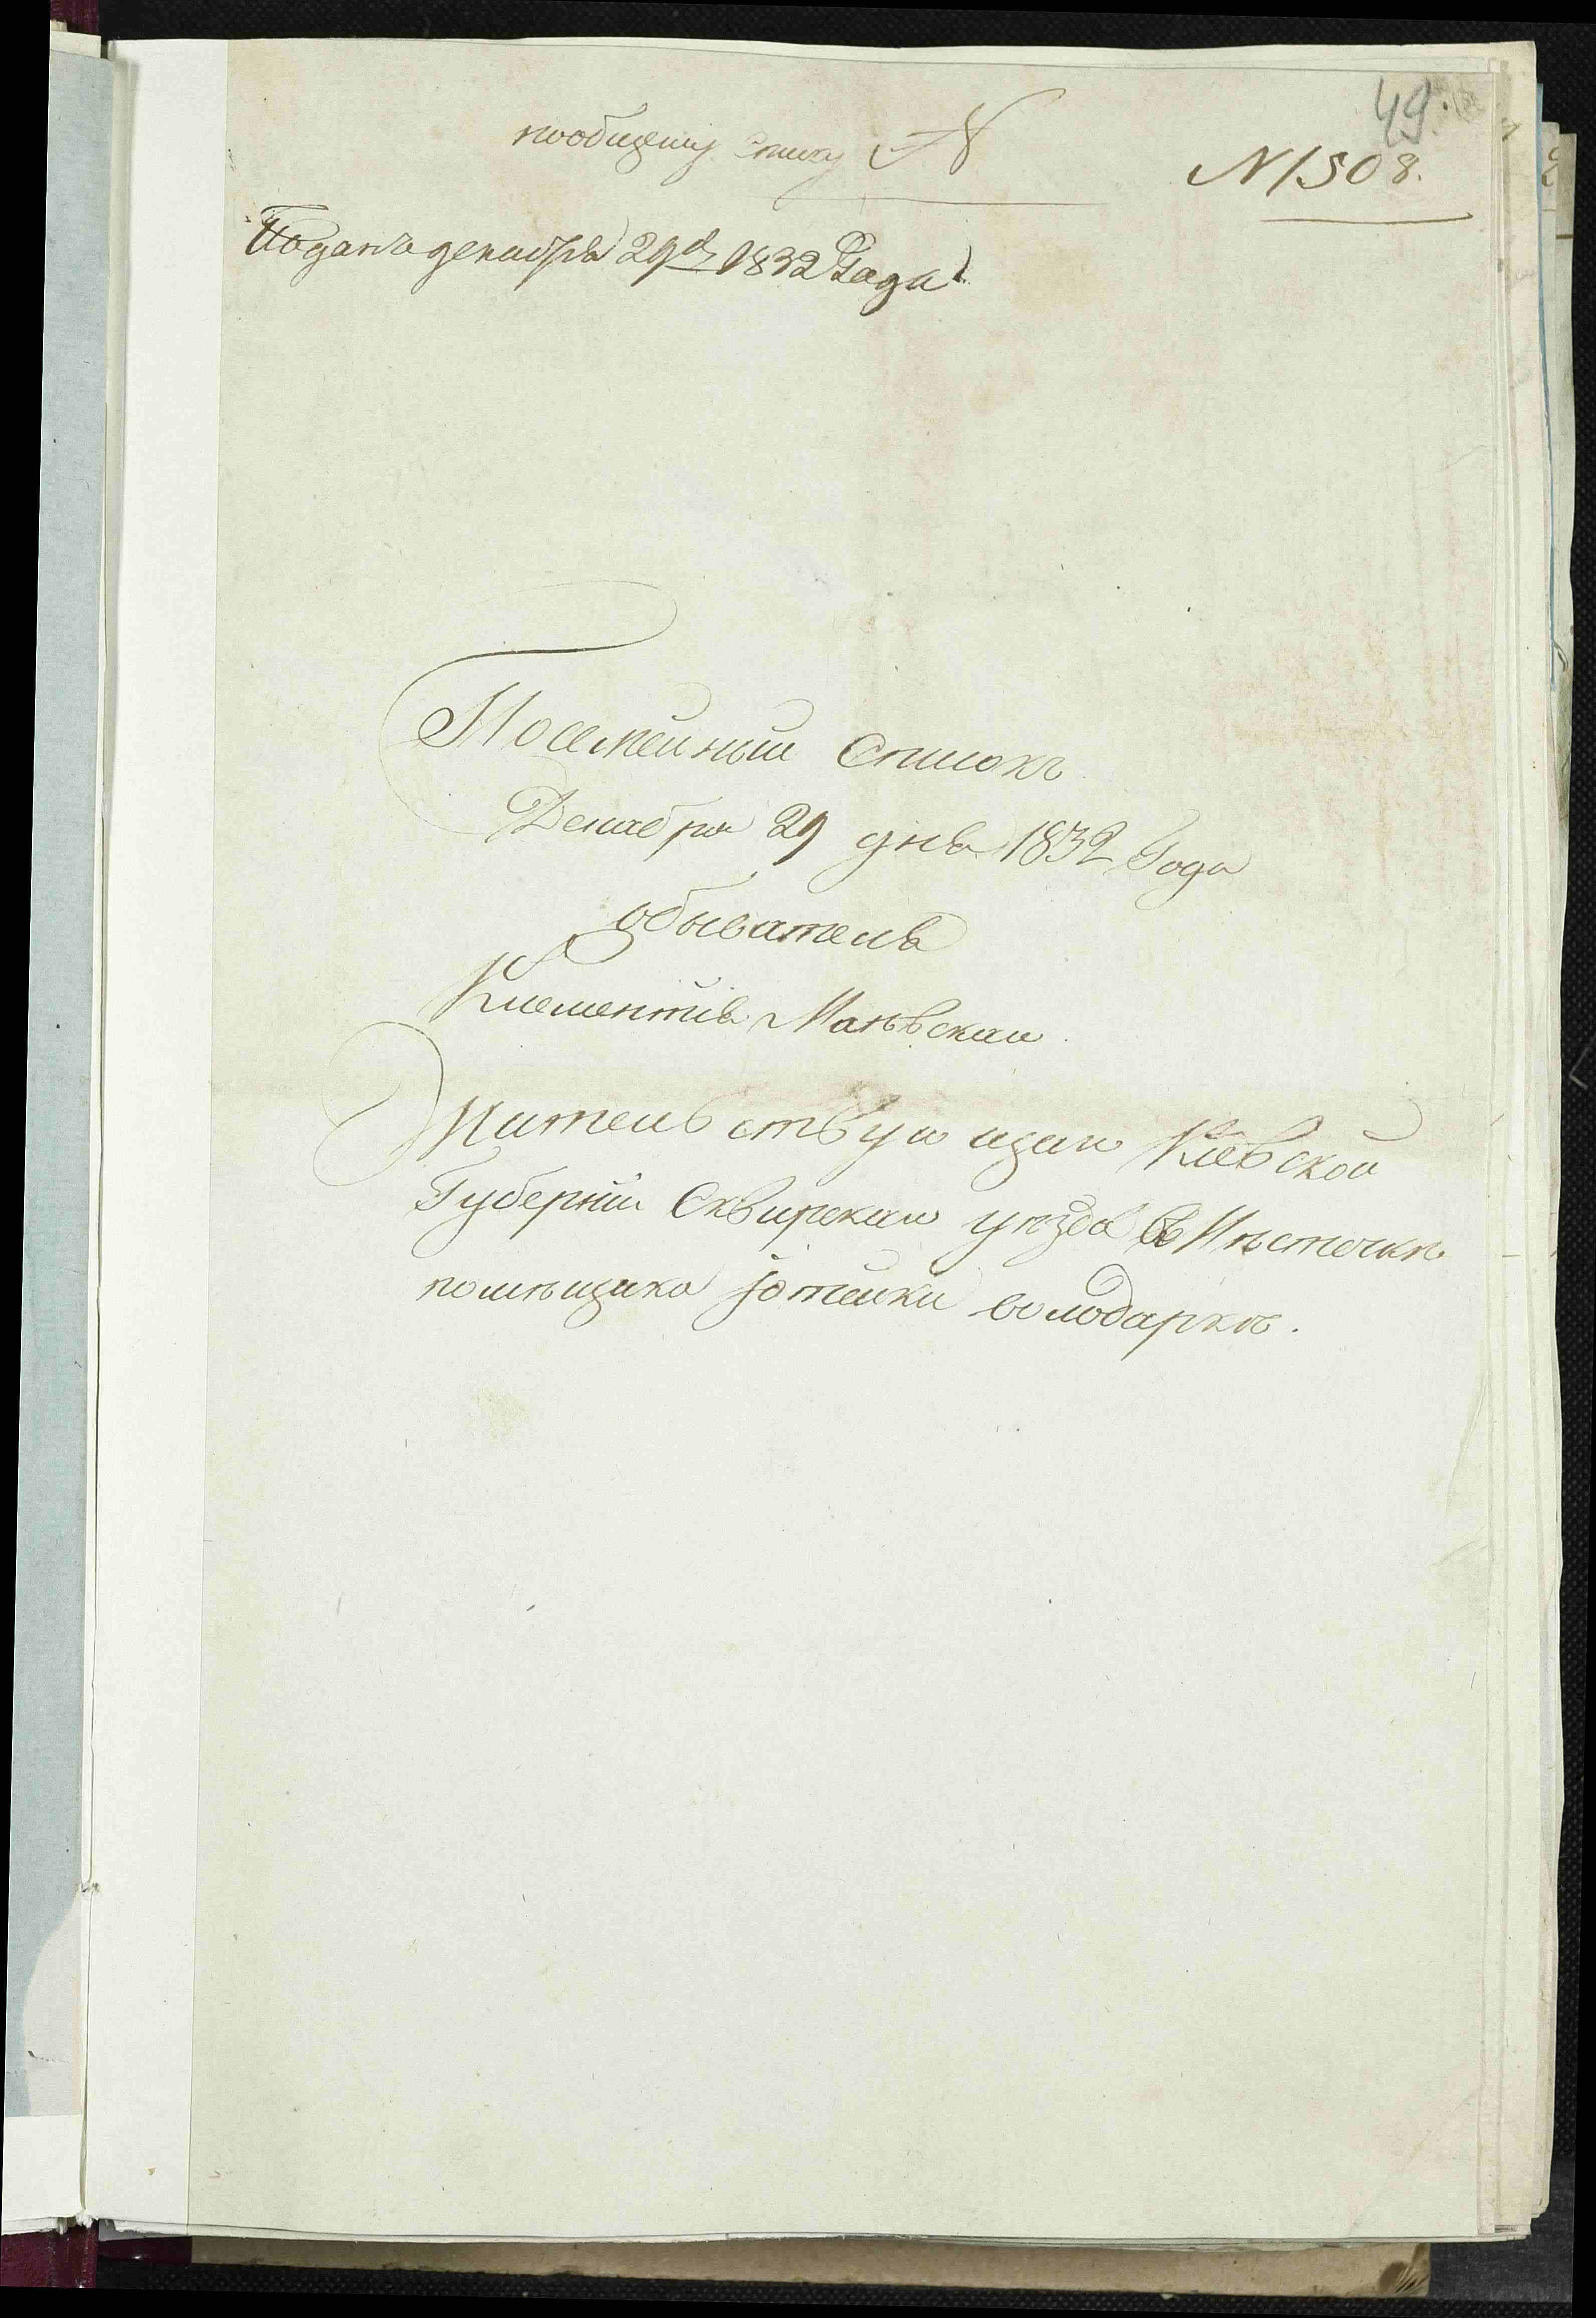 49.
пообщему Списку N
N 1508.
Поданъ декабря 29д 1832 Года
Посемейный Списокъ
Декабря 29 дня 1832 Года
обыватель
Клементий Маньвский
Жительствующий Киевской
Губернии Сквирскаго уезда въ Мѣстечкѣ
помѣщика володаркѣ.